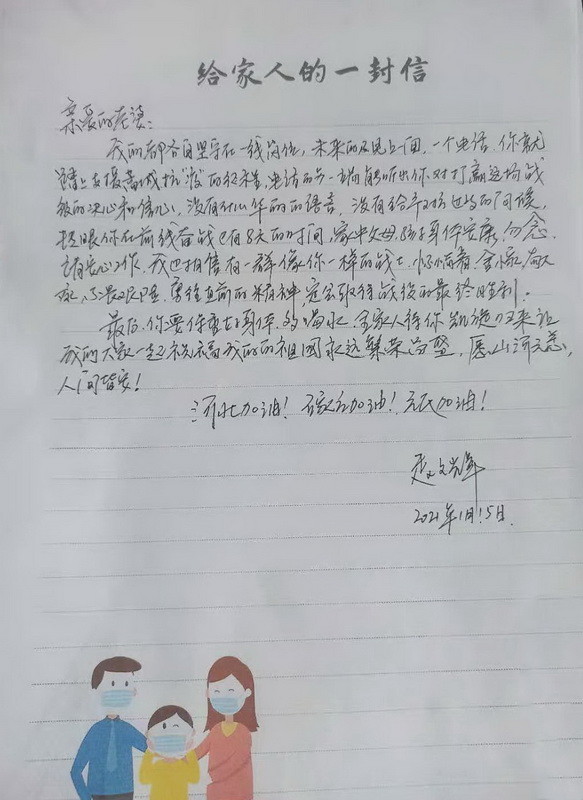 给家人的一封信
亲爱的老婆：
我们都各自坚守在一线岗位，未来的及见上一面，一个电话，你就
踏上支援藁城抗"疫"的征程，电话的另一端能听出你对打赢这场战
役的决心和信心，没有什么华丽的语言，没有给予对方过多的问候，
转眼你在前线奋战已有8天的时间，家中父母、孩子身体安康，勿念，
安心工作，我也相信有一群像你一样的战士，舍小家，为大
家，不畏艰险，勇往直前的精神，定会取得战役的最终胜利。
最后，你要保重好身体，多喝水，全家人待你凯旋归来，让
我们大家一起祝福我们的祖国永远繁荣昌盛，愿山河无恙，
人间皆安！
河北加油！石家庄加油！元氏加油！
文
2021年1月15日